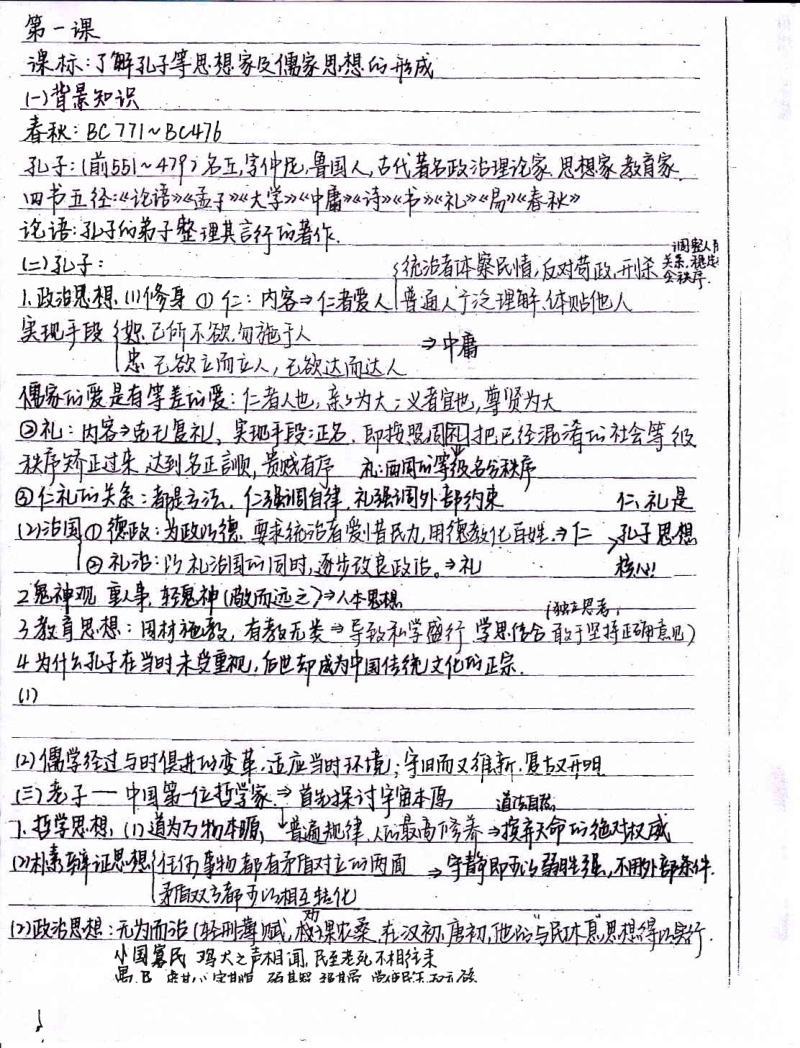 第一课
课标:了解孔子等思想家及儒家思想的形成
(一)背景知识
春秋:BC771~BC476
孔子:(前551~479)名丘,字仲尼,鲁国人,古代著名政治理论家.思想家.教育家.
四书五经:《论语》《孟子》《大学》《中庸》《诗》《书》《礼》《易》《春秋》
论语:孔子的弟子整理其言行的著作.
(二)孔子:
统治者体察民情,反对苛政,刑杀
调整人际关系,稳定
会秩序.
1.政治思想.(1)修身①仁:内容→仁者爱人
普通人广泛理解.体贴他人
实现手段
恕.己所不欲,勿施于人
忠 己欲立而立人,己欲达而达人
⇒中庸
儒家的爱是有等差的爱:仁者人也,亲亲为大;义者宜也,尊贤为大
②礼:内容→克己复礼,实现手段:正名.即按照周礼把已经混淆的社会等级
秩序矫正过来,达到名正言顺,贵贱有序
礼:西周的等级名分秩序
③仁礼的关系:都是方法.仁强调自律.礼强调外部约束
仁、礼是
孔子思想
核心!
(2)治国①德政:为政以德.要求统治者爱惜民力,用德教化百姓.⇒仁
②礼治:以礼治国的同时,逐步改良政治。⇒礼
2.鬼神观 重人事,轻鬼神(敬而远之)⇒人本思想
3.教育思想:因材施教,有教无类⇒导致私学盛行 学思结合
(独立思考,
敢于坚持正确意见)
4.为什么孔子在当时未受重视,后世却成为中国传统文化的正宗.
(1)
(2)儒学经过与时俱进的变革.适应当时环境;守旧而又维新.复古又开明
(三)老子——中国第一位哲学家⇒首先探讨宇宙本原
道法自然
1.哲学思想.(1)道为万物本源,普遍规律.人的最高修养⇒摸弃天命的绝对权威
(2)朴素辩证思想
任何事物都有矛盾对立的两面
矛盾双方都可以相互转化
⇒守静即可以弱胜强,不用外部条件.
(2)政治思想:无为而治(轻刑薄赋,劝课农桑.在汉初.唐初,他的"与民休息"思想得以实行.
小国寡民 鸡犬之声相闻,民至老死不相往来